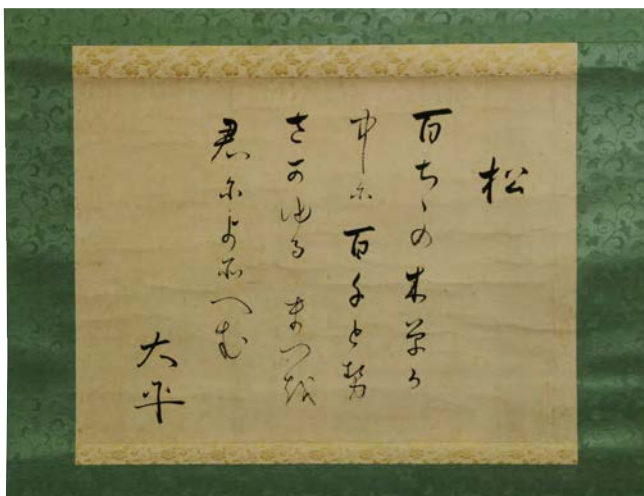 松
百ちゝの木草か
中に百千とせ
さかゆるまつを
君によそへむ
大平